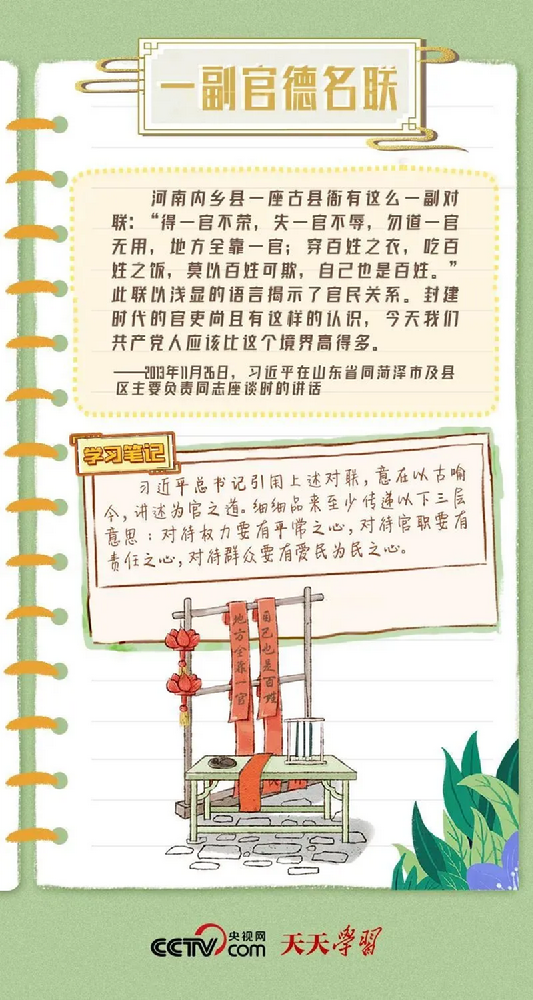 一副官德名联
河南内乡县一座古县衙有这么一副对
联：“得一官不荣，失一官不辱，勿道一官
无用，地方全靠一官；穿百姓之衣，吃百
姓之饭，莫以百姓可欺，自己也是百姓。”
此联以浅显的语言揭示了官民关系。封建
时代的官吏尚且有这样的认识，今天我们
共产党人应该比这个境界高得多。
——2013年11月26日，习近平在山东省同菏泽市及县
区主要负责同志座谈时的讲话
学习笔记
习近平总书记引用上述对联，意在以古喻
今，讲述为官之道。细细品来至少传递以下三层
意思：对待权力要有平常之心，对待官职要有
责任之心，对待群众要有爱民为民之心。
自己也是百姓
地方全靠一官
CCTV.com 央视网
天天学习